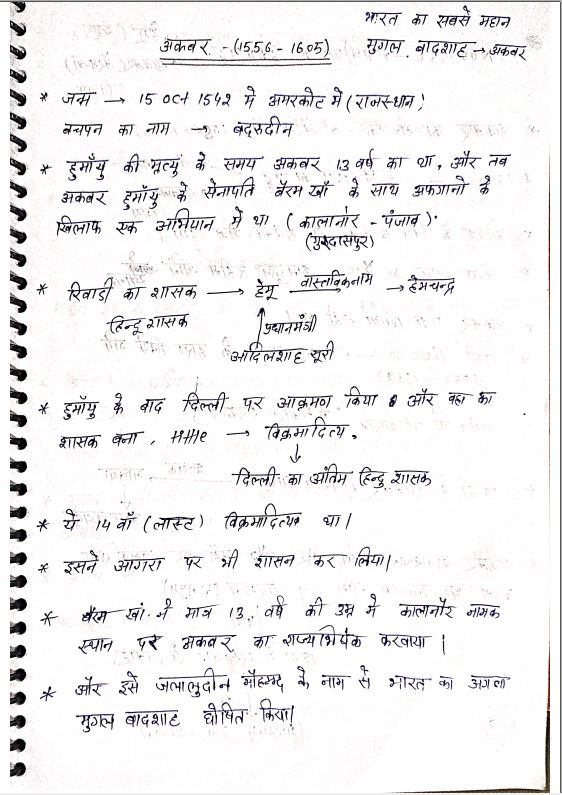 भारत का सबसे महान
मुगल बादशाह → अकबर
अकबर - (1556 - 1605)
* जन्म → 15 Oct 1542 मे अमरकोट मे (राजस्थान)
बचपन का नाम → बदरुदीन
* हुमाँयु की मृत्यु के समय अकबर 13 वर्ष का था, और तब
अकबर हुमाँयु के सेनापति बैरम खाँ के साथ अफगानो के
खिलाफ एक अभियान मे था (कालानौर - पंजाब)
(गुरुदासपुर)
* रिवाडी का शासक → हेमू वास्तविकनाम → हेमचन्द्र
हिन्दू शासक
प्रधानमंत्री
आदिलशाह सूरी
* हुमाँयु के बाद दिल्ली पर आक्रमण किया और वहा का
शासक बना, → विक्रमादित्य,
↓
दिल्ली का अंतिम हिन्दु शासक
* ये 14 वाँ (लास्ट) विक्रमादित्य था।
* इसने आगरा पर भी शासन कर लिया।
* बैरम खां ने मात्र 13 वर्ष की उम्र मे कालानौर नामक
स्थान पर अकबर का राज्यभिषेक करवाया |
* और इसे जलालुदीन मौहम्मद के नाम से भारत का अगला
मुगल बादशाह घोषित किया।